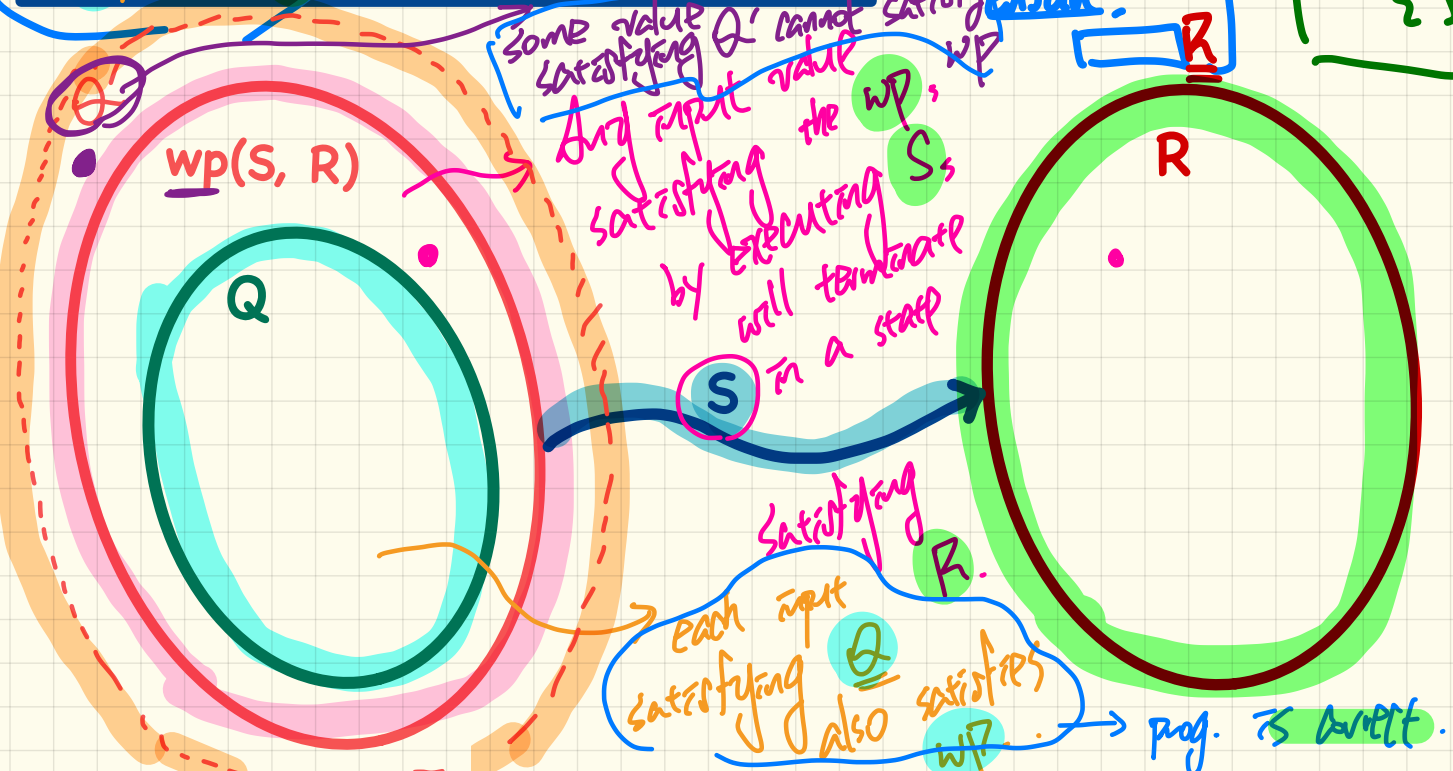 some value
satisfying Q cannot satisfy
wp
R
Q
wp(S, R)
Any input value
satisfying the wp,
by executing S,
will terminate
in a state
satisfying
R.
Q
R
S
each input
satisfying Q
also satisfies
wp.
prog. is correct.